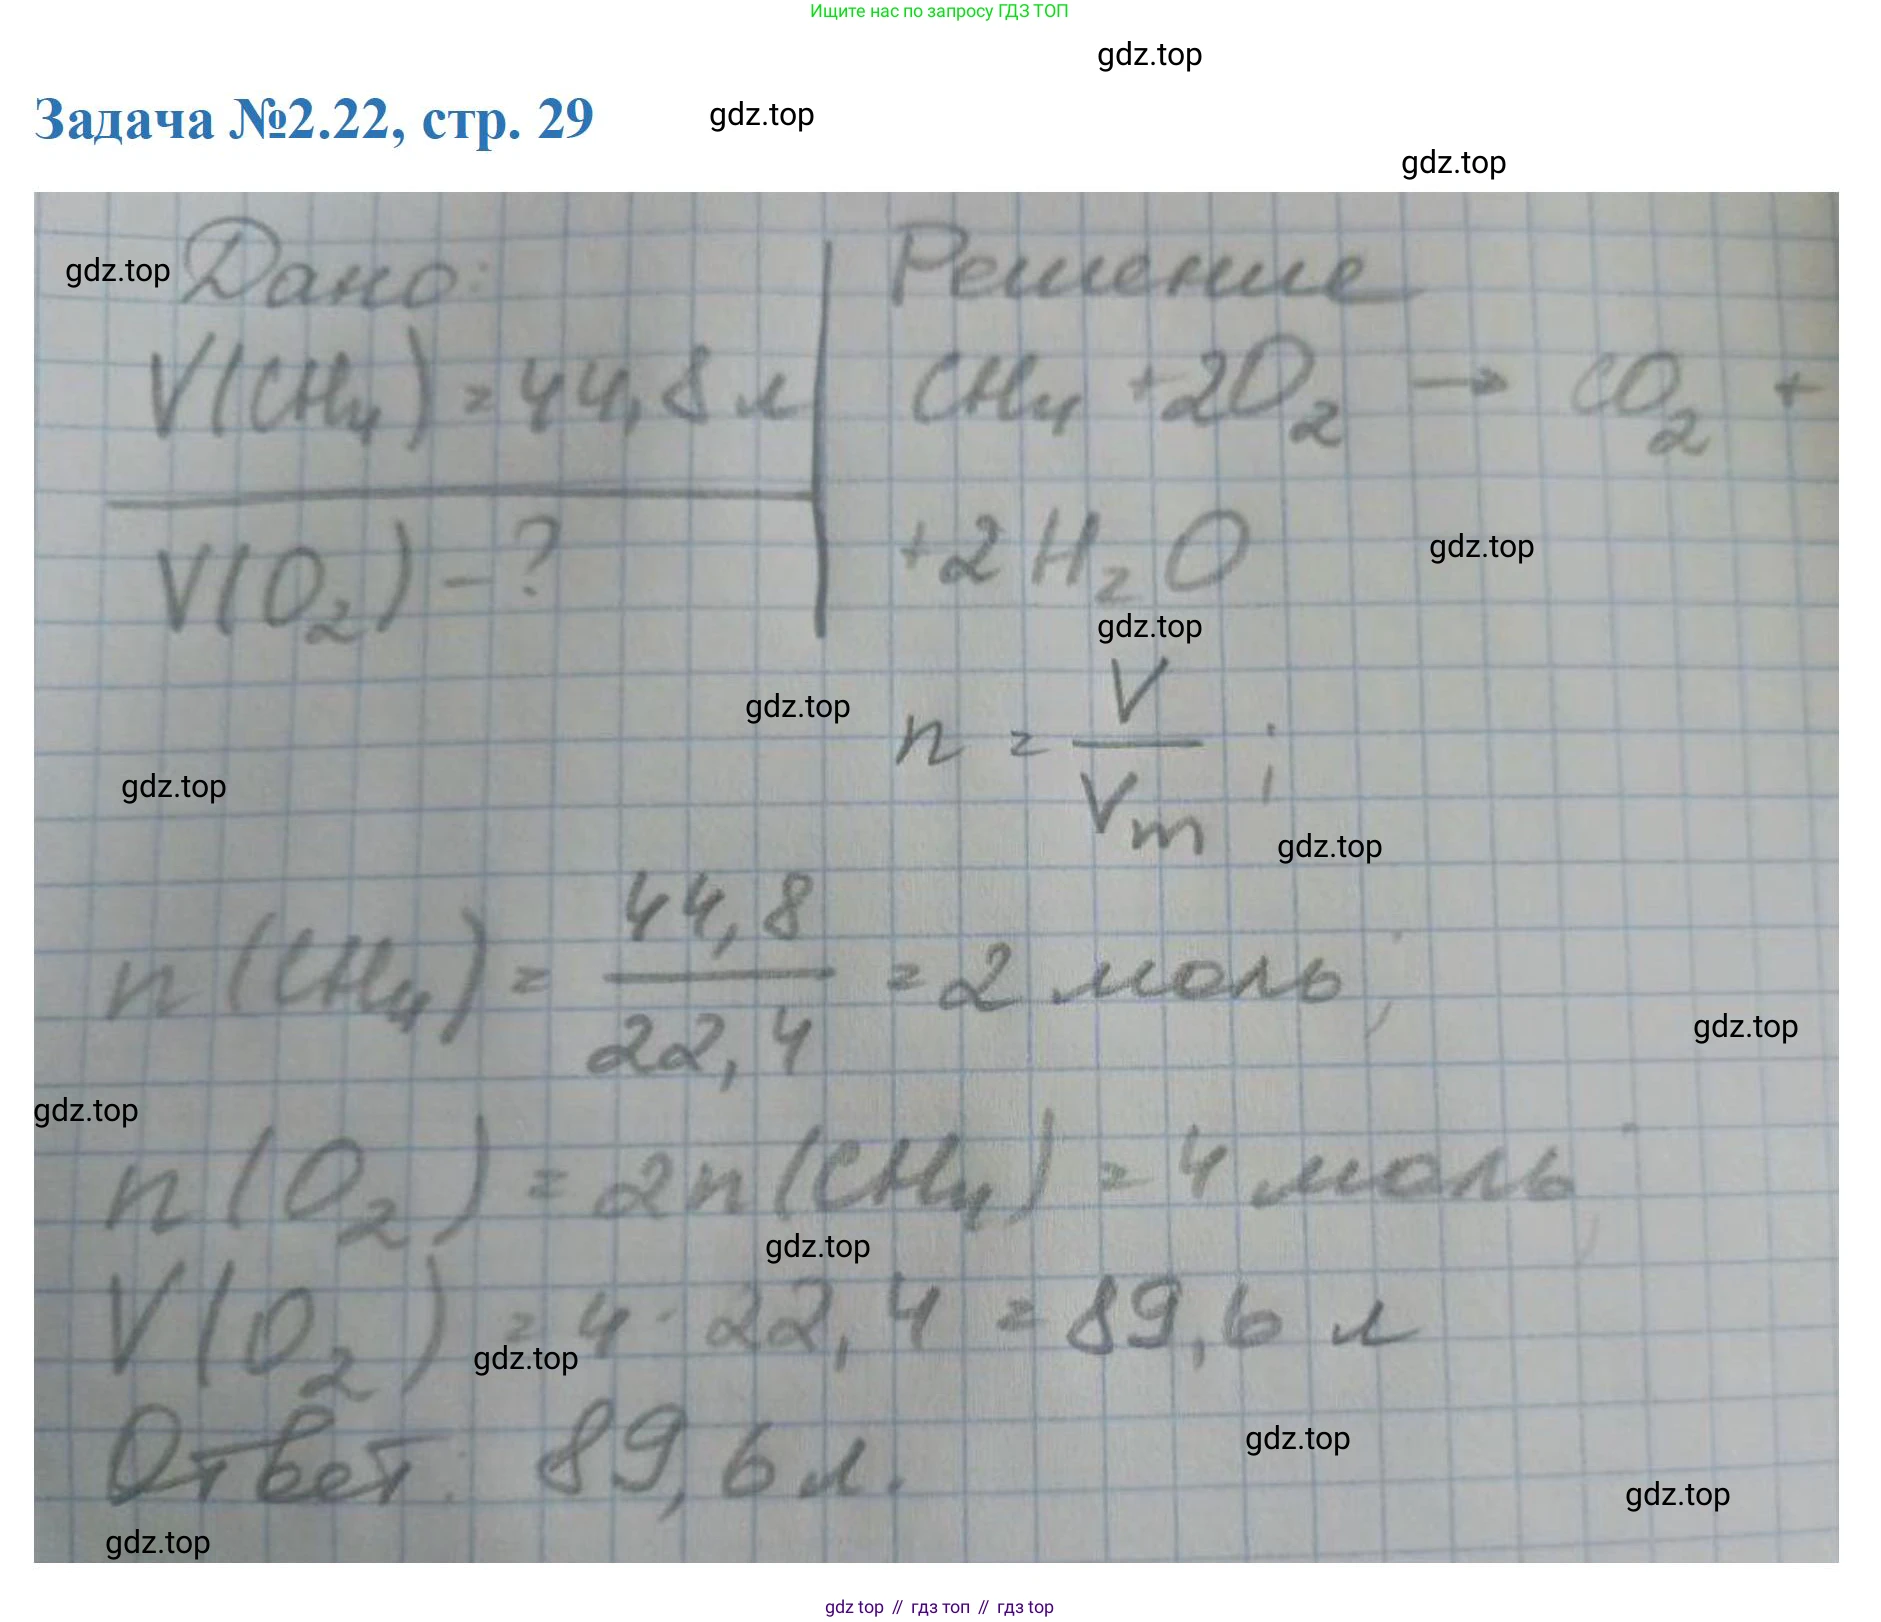 Ищите нас по запросу ГДЗ ТОП
gdz.top
Задача №2.22, стр. 29
gdz.top
gdz.top
Дано:
Решение
gdz.top
V(CH₄) = 44,8 л
CH₄ + 2O₂ → CO₂ +
V(O₂) – ?
+ 2H₂O
gdz.top
gdz.top
n = V/Vm ;
gdz.top
gdz.top
gdz.top
n(CH₄) = 44,8/22,4 = 2 моль;
gdz.top
gdz.top
n(O₂) = 2n(CH₄) = 4 моль;
gdz.top
V(O₂) = 4 · 22,4 = 89,6 л
gdz.top
Ответ: 89,6 л.
gdz.top
gdz.top
gdz.top
gdz top // гдз топ // гдз top